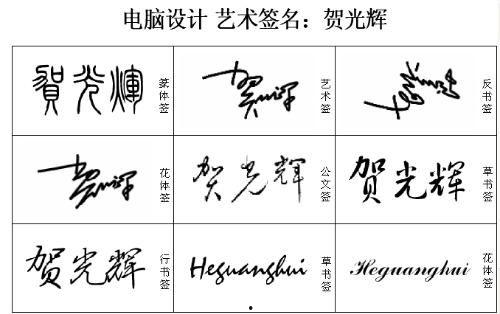 电脑设计 艺术签名：贺光辉
賀光輝 篆体签
贺光辉 艺术签
贺光辉 反书签
贺光辉 花体签
贺光辉 公文签
贺光辉 草书签
贺光辉 行书签
Heguanghui 草书签
Heguanghui 花体签